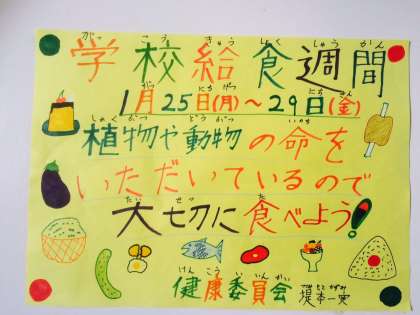 学校給食週間
1月25日(月)～29日(金)
植物や動物の命を
いただいているので
大切に食べよう!
健康委員会